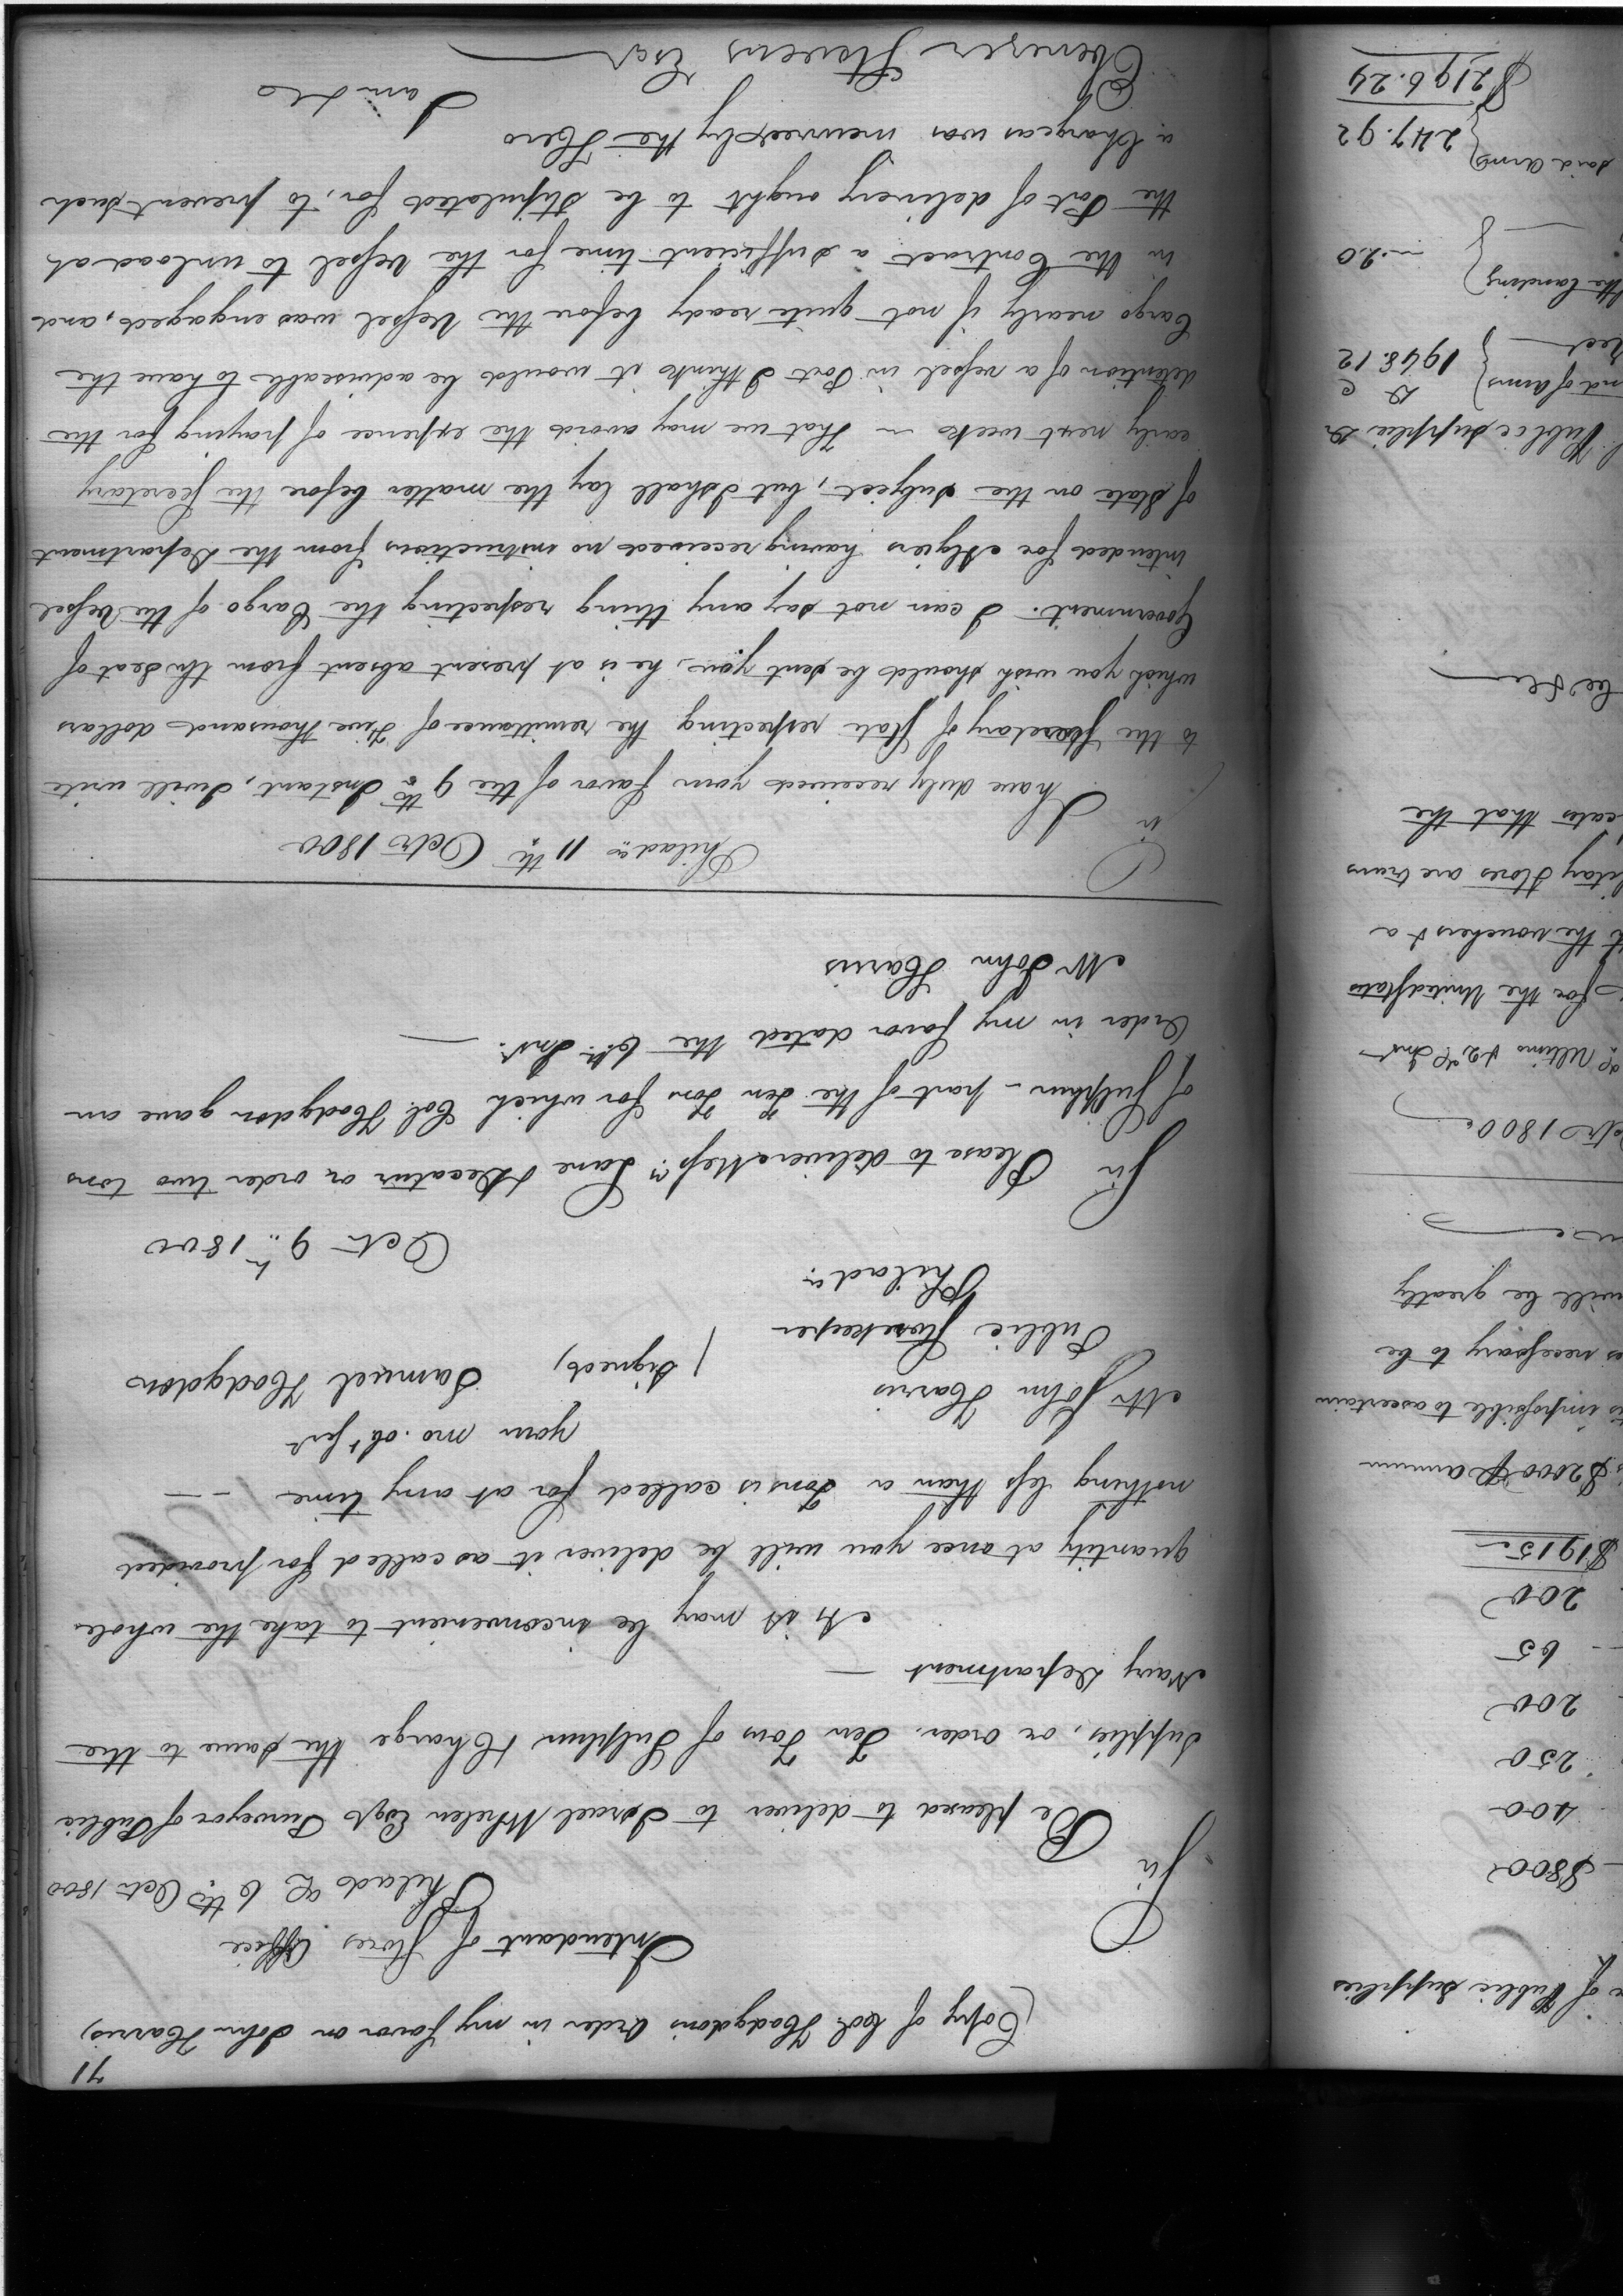 71
(Copy of Col. Hodgdon's Order in my favor on John Harris)
Intendant of Stores Office
Philada 6th Octr 1800
Sir
Be pleased to deliver to Israel Whelen Esqr Purveyor of Public
Supplies, or order. Ten Tons of Sulphur & Charge the same to the
Navy Department —
As it may be inconvenient to take the whole
quantity at once you will be deliver it as called for provided
nothing less than a Ton is called for at any time — —
your mo. obt Servt
Mr John Harris (signed) Samuel Hodgdon
Public Storekeeper
Philada
Octr 9th 1800
Sir Please to deliver Messrs Lane & Decatur or order two tons
of Sulphur - part of the Ten Tons for which Col. Hodgdon gave an
Order in my favor dated the 6th Inst. —
Mr John Harris
Philada 11th Octr 1800
Sir
I have duly received your favor of the 9th Instant, I will write
to the Secretary of State respecting the remittance of Five thousand dollars
which you wish should be sent you, he is at present absent from the Seat of
Government. I can not say any thing respecting the Cargo of the Vessel
intended for Algiers having received no instructions from the Department
of State on the subject, but I shall lay the matter before the Secretary
early next week — That we may avoid the expence of paying for the
detention of a vessel in Port I think it would be adviseable to have the
Cargo nearly if not quite ready before the Vessel was engaged, and
in the Contract a sufficient time for the Vessel to unload at
the Port of delivery ought to be stipulated for, to prevent such
a Charge as was incurred by the Hero
I am &c
Ebenezer Stevens Esqr
of Public Supplies
$800
400
250
200
65
200
$1915
$2000 ⅌ annum
is impossible to ascertain
is necessary to be
will be greatly
Octr 1800
Ultimo & 2d Inst
for the United States
the vouchers & a
litary Stores are trans
cates that the
Public Supplies Dr
nd of Arms D C
1948.12
the landing
" 20
said Arms 247.92
$2196.24